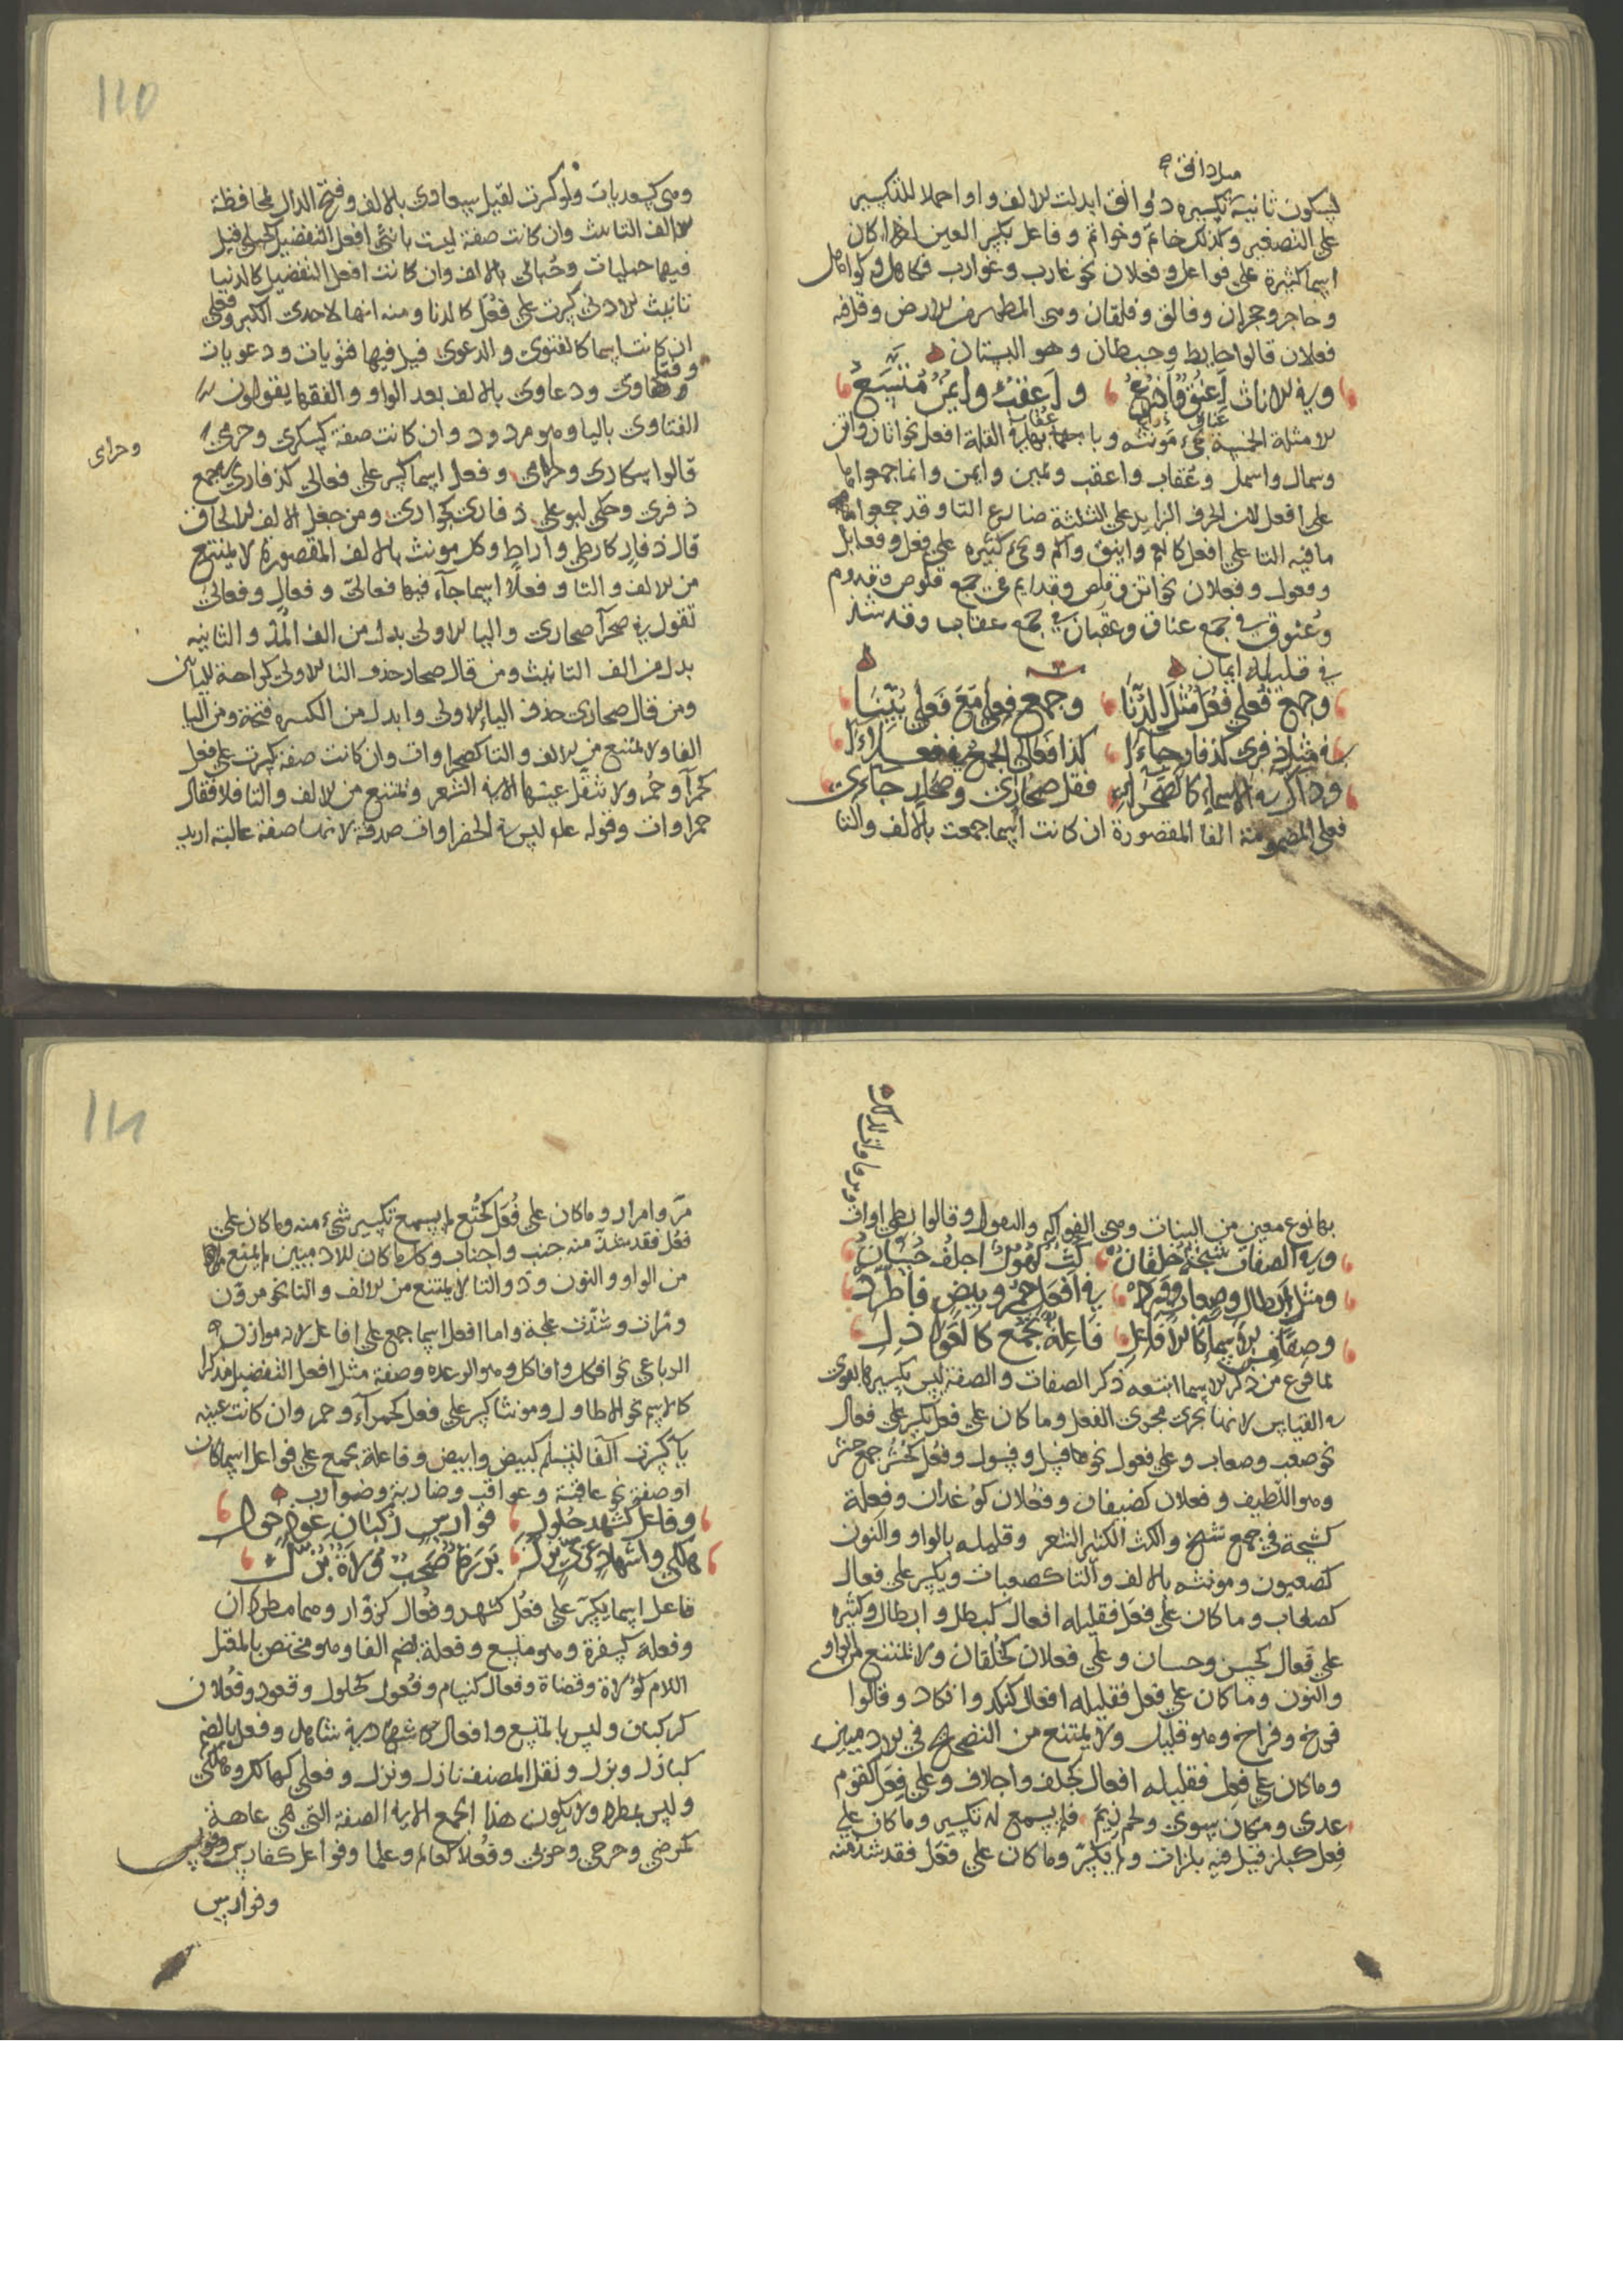 دوانق
ليكون ثانية تكسيره دوانق ابدلت الالف واوا حملا للتكسير
على التصغير وكذلك خاتم وخواتم وفاعل بكسر العين اذا كان
اسما كثيرة على فواعل وفعلان نحو غارب وغوارب وكاهل وكواهل
وحاجر وحجران وفالق وفلقان وهي المطمئن من الارض
فعلان قالوا حايط وحيطان وهو البستان
وفي الاناث اعنق واذرع واعقب وايمن متسع
الامثلة الخمسة مؤنثة القلة افعل نحو اتان واتن
وشمال واشمل وعقاب واعقب ويمين وايمن وانما جمعوا
على افعل لان الحرف الزايد على الثلثة ضارع التا وقد جمعوا
ما فيه التا على افعل كانعم واينق واكم وكثيره على فعل وفعايل
وفعول وفعلان نحو اتن وقلص وقدايم في جمع قلوص وقدوم
وعنوق في جمع عناق وعقبان في جمع عقاب وقد شذ
في قليله ايمان
وجمع فعلى فعل مثل الدنا وجمع فعلى مع فعلى بينا
في مثل ذفرى كذفار جاءا كذا فعالى الجمع في فعلاءا
وذاك في الاسماء كالصحراء فقل صحاري وصحار جاءي
فعلى المضمومة الفا المقصورة ان كانت اسما جمعت بالالف والتا
110
وهي كسعديات ولو كسرت لقيل سعادى بالالف وفتح الدال محافظة
الف التانيث وان كانت صفة ليست بانثى افعل التفضيل كحبلى قيل
فيها حبليات وحبالى بالالف وان كانت افعل التفضيل كالدنيا
تانيث الادنى كسرت على فعل كالدنا ومنه انها لاحدى الكبر وفعلى
ان كانت اسما كالفتوى والدعوى قيل فيها فتويات ودعويات
وفتاوى ودعاوى بالالف بعد الواو والفقها يقولون
الفتاوى باليا وهو مردود وان كانت صفة كسكرى وحرمى
وحرامى
قالوا سكارى وحرامى وفعلى اسما كسر على فعالى كذفارى جمع
ذفرى وحكى ابو على ذفارى كجوارى ومن جعل الالف للالحاق
قال ذفار كارطى واراط وكل مونث بالالف المقصورة لا يمتنع
من الالف والتا وفعلا اسما جاء فيها فعالى وفعال وفعالى
تقول في صحرآ صحارى واليا الاولى بدل من الف المد والثانيه
بدل من الف التانيث ومن قال صحار حذف اليا الاولى كراهة
ومن قال صحارى حذف الياء الاولى وابدل من الكسره فتحة ومن اليا
الفا ولا تمتنع من الالف والتا كصحراوات وان كانت صفة كسرت على فعل
كحمرآ وحمر ولا تثقل عينها الا في الشعر وتمتنع من الالف والتا فلا يقال
حمراوات وقوله عليه ليس في الخضراوات صدقة لانها صفة غالبة اريد
بها نوع معين من النبات وهي الفواكه والبقول وقالوا بطحاوات
وفي الصفات شيخة خلقان كث كهول اجلف حسان
ومثل ابطال وصعاب وفره في افعل حمر وبيض فاطرد
وصفا من الاسماء كالافاعل فاعلة تجمع كالعواذل
لما فرغ من ذكر الاسما اتبعه ذكر الصفات والصفة ليس تكسيرها بقوى
في القياس لانها تجرى مجرى الفعل وما كان على فعل كسر على فعال
نحو صعب وصعاب وعلى فعول نحو وفعل كحشر جمع حشر
وهو اللطيف وفعلان كضيفان وفعلان كوغدان وفعلة
كشيخة في جمع شيخ والكث الكثير الشعر وقليله بالواو والنون
كصعبون ومونثه بالالف والتا كصعبات ويكسر على فعال
كصعاب وما كان على فعل فقليله افعال كبطل وابطال وكثيره
على فعال كحسن وحسان وعلى فعلان كخلقان ولا تمتنع من الواو
والنون وما كان على فعل فقليله افعال كنكد وانكاد وقالوا
فرخ وفراخ وهو قليل ولا يمتنع من التصحيح في الادميين
وما كان على فعل فقليله افعال كجلف واجلاف وعلى فعل كقوم
عدى ومكان سوى ولحم زيم فلم يسمع له تكسير وما كان على
فعل كبلز قيل فيه بلزات ولم يكسر وما كان على فعل فقد شذ منه
مر وامرار وما كان على فعل كختع لم يسمع تكسير شيء منه وما كان على
فعل فقد شذ منه جنب واجناب وكل ما كان للادميين لم يمتنع
من الواو والنون وذو التا لا يمتنع من الالف والتا نحو
ومرات وشذت علجة واما افعل اسما جمع على افاعل لانه موازن
الرباعى نحو افكل وافاكل وهو الرعده وصفة مثل افعل التفضيل مذكرا
كالاسم نحو الاطاول ومونثا كسر على فعل كحمرآء وحمر وان كانت عينه
يآء كسرت الفا لتسلم كبيض وابيض وفاعلة تجمع على فواعل اسما كان
او صفة نحو عاقبة وعواقب وضاربة وضوارب
وفاعل كشهد حلول فوارس ركبان عوذ حول
هلكى واشهاد غزى بزل بررة صحب ولاة نزل
فاعل اسما يكسر على فعل كشهد وفعال كزوار وهما مطردان
وفعلة كسفرة وهو متسع وفعلة بضم الفا وهو مختص بالمعتل
اللام كولاة وقضاة وفعال كنيام وفعول كحلول وقعود وفعلان
كركبان وليس بالمتسع وافعال كاشهاد في شاهد وفعل بالضم
كبازل وبزل ونقل المصنف نازل ونزل وفعلى كهالك وهلكى
وليس بمطرد ولا يكون هذا الجمع الا في الصفة التى هى عاهة
كمرضى وجرحى وحزنى وفعلا كعالم وعلما وفواعل كفارس
وفوارس